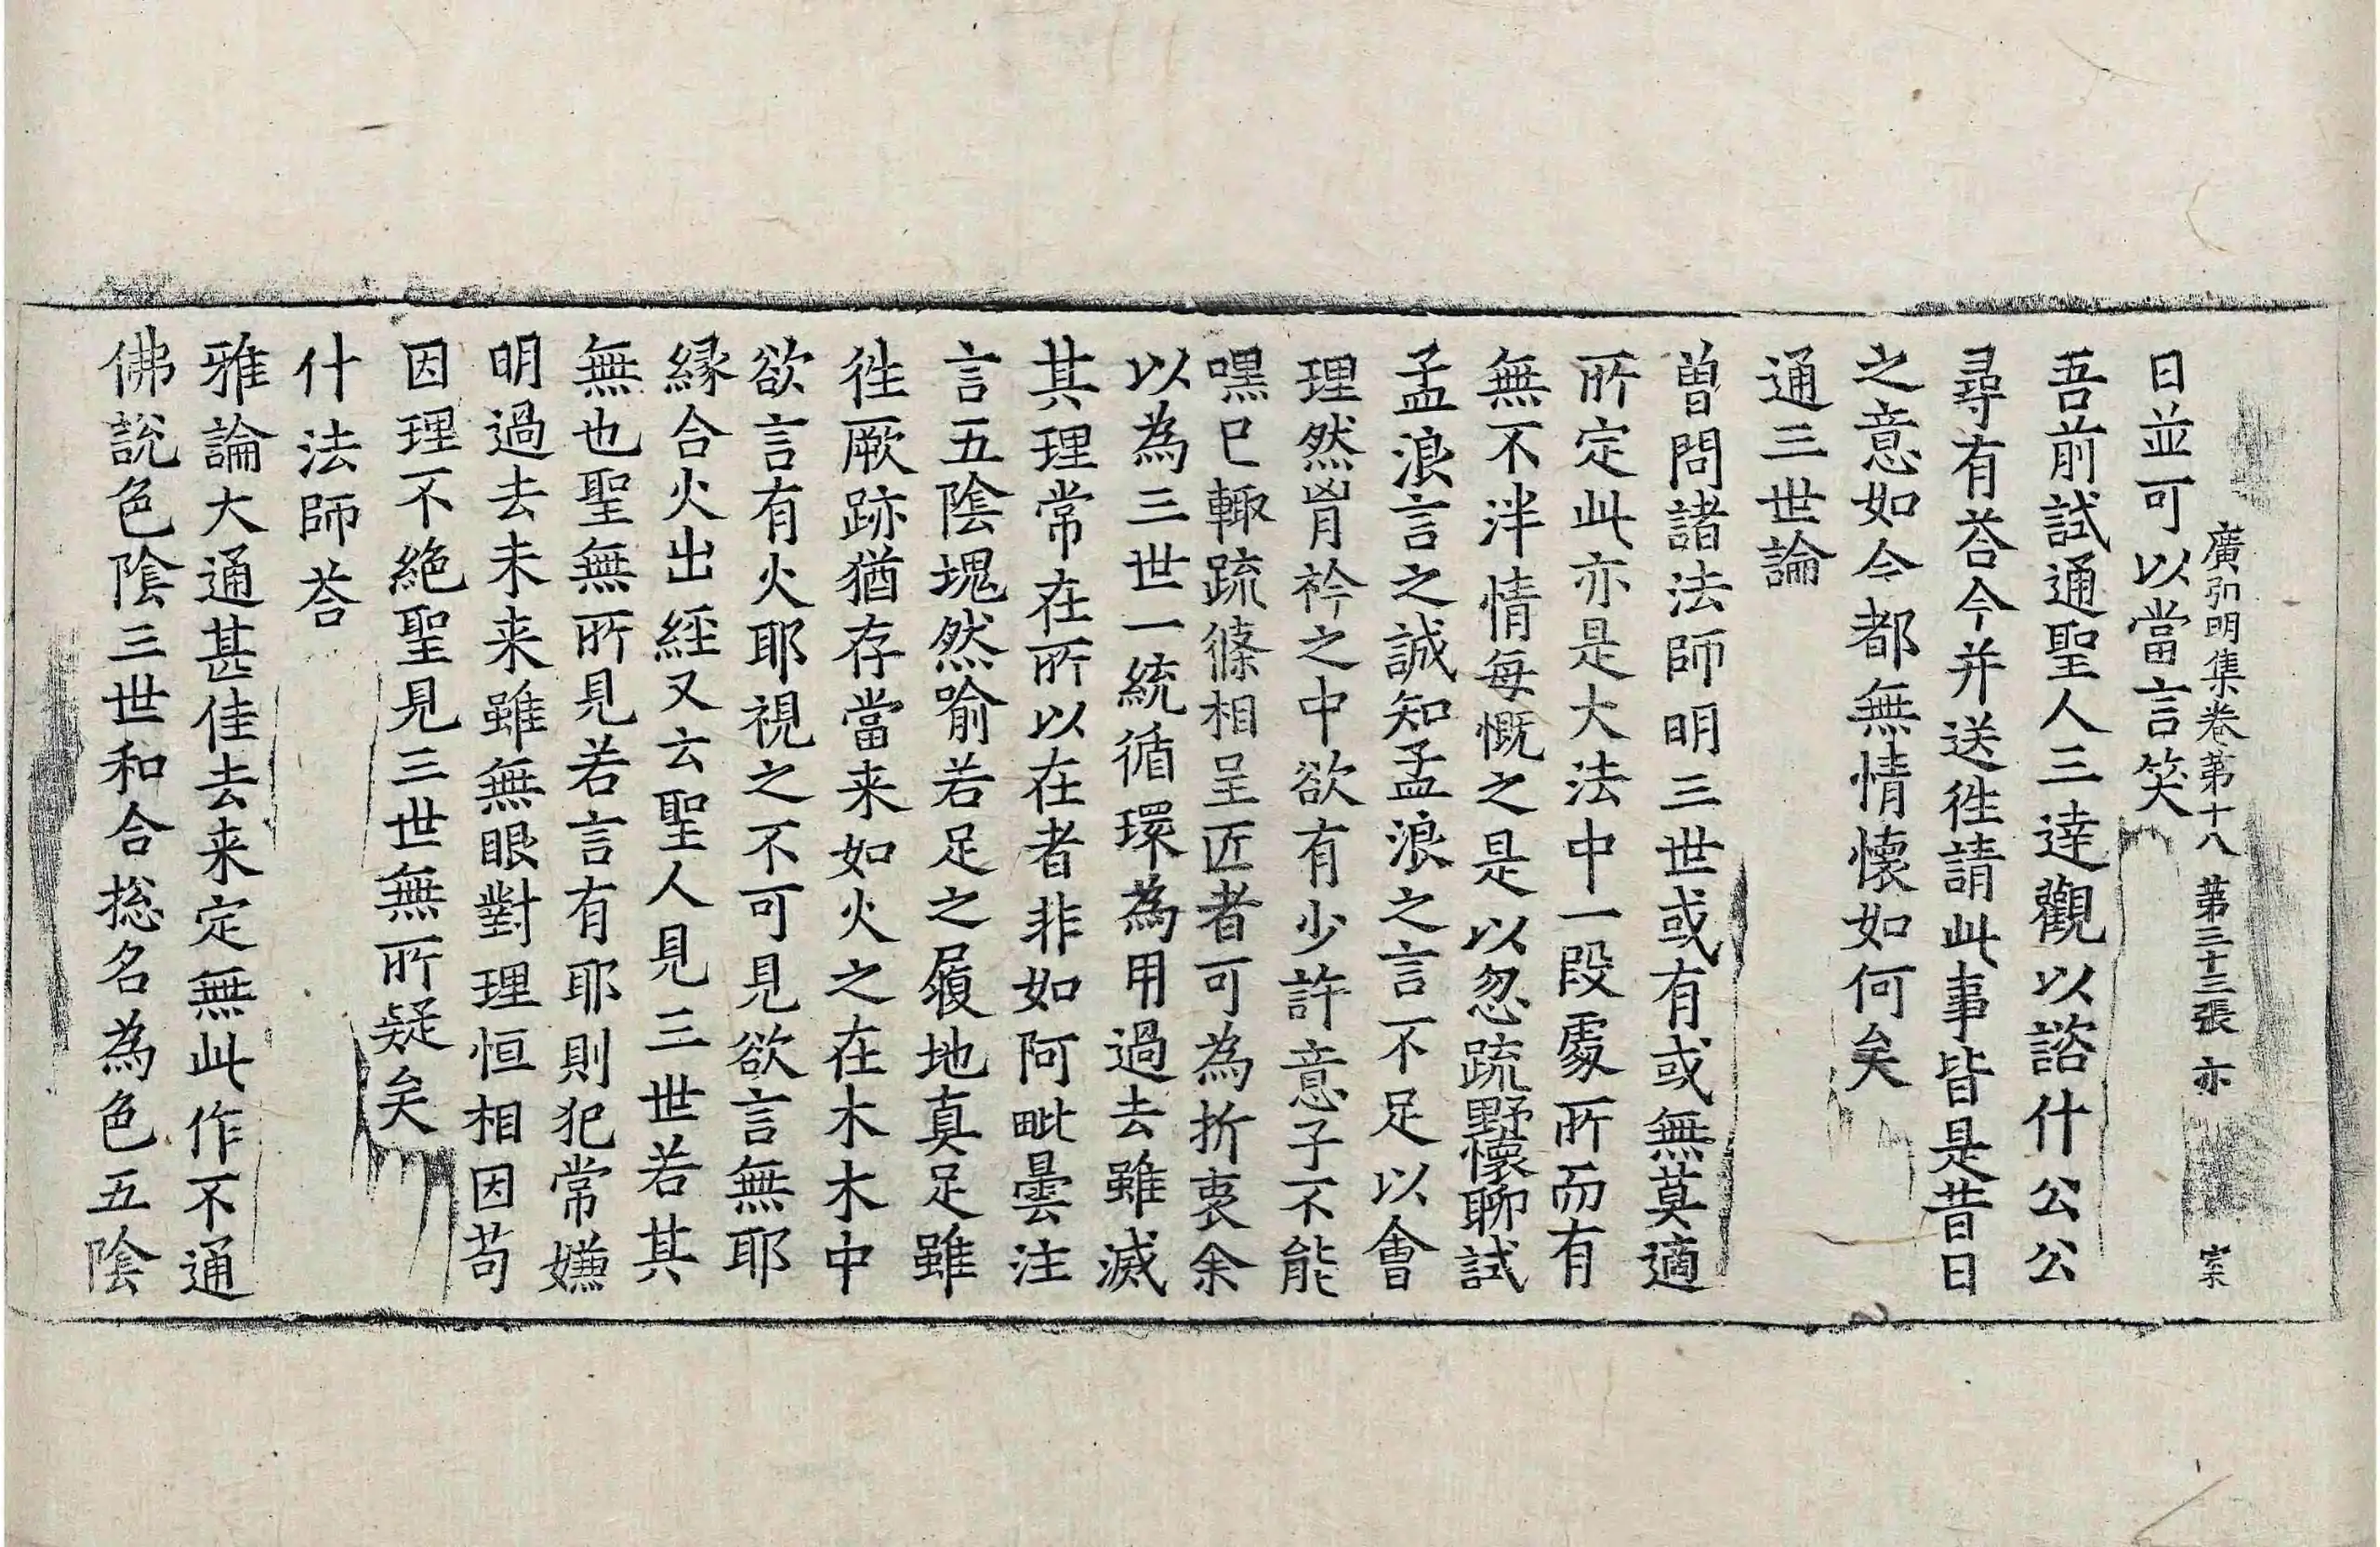 廣弘明集卷第十八 第三十三張 亦 宋
日並可以當言笑
吾前試通聖人三達觀以諮什公公
尋有荅今并送往請此事皆是昔日
之意如今都無情懷如何矣
通三世論
曽問諸法師明三世或有或無莫適
所定此亦是大法中一段處所而有
無不泮情每慨之是以忽疏野懷聊試
孟浪言之誠知孟浪之言不足以會
理然胷衿之中欲有少許意子不能
嘿已輙疏條相呈匠者可為折衷余
以為三世一統循環為用過去雖滅
其理常在所以在者非如阿毗曇注
言五陰塊然喻若足之履地真足雖
徃厥跡猶存當来如火之在木木中
欲言有火耶視之不可見欲言無耶
縁合火出經又云聖人見三世若其
無也聖無所見若言有耶則犯常嫌
明過去未来雖無眼對理恒相因苟
因理不絶聖見三世無所疑矣
什法師荅
雅論大通甚佳去来定無此作不通
佛說色陰三世和合捴名為色五陰